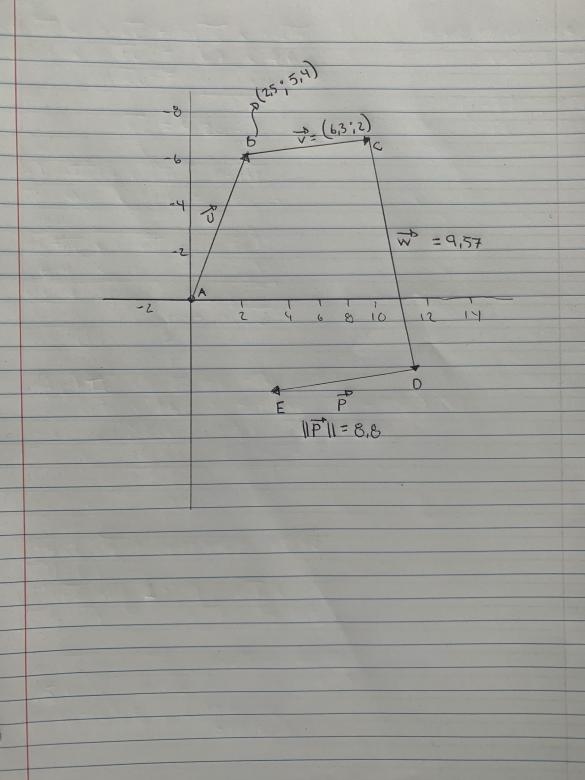 (2,5 ; 5,4)
-8
B
v = (6,3 ; 2)
C
-6
-4
U
-2
w = 9,57
A
-2
2 4 6 8 10 12 14
D
E
P
||P|| = 8,8